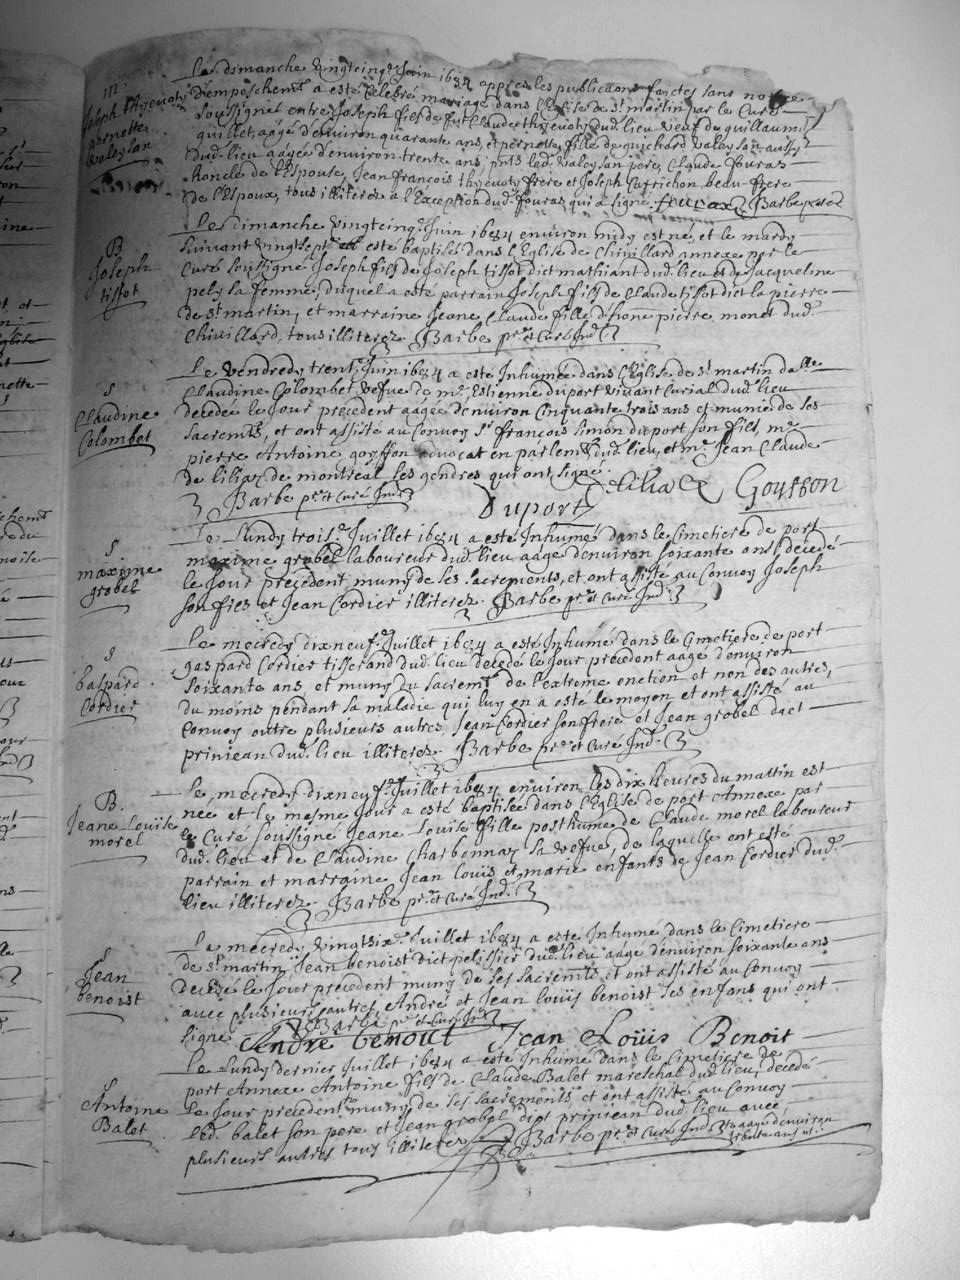 m
Joseph thyevoty
pernette
Valoysan
Le dimanche vingtcinq.e Juin 1684 appres les publications faictes sans nottre
dempeschemt a esté celebré mariage dans l'Eglise de St martin par le Curé
soussigné entre Joseph fils de fut Claude thyevoty dud. lieu veuf de guillaumi
quillet, aagé d'environ quarante ans, et pernette fille de guichard Valoysan aussy
dud. lieu aagée d'environ trente ans, pnts led. Valoysan pere, Claude fouras
de l'Espouse, Jean françois thyevoty frere et Joseph Cufrichon beau-frere
de l'Espoux, tous illiterez a l'Exception dud. fouras qui a signé. fouras Barbe
B
Joseph
tissot
Le dimanche vingtcinq.e Juin 1684 environ midy est né, et le mardy
suivant vingtsept.e esté baptisé dans l'Eglise de Chivillard annexe par le
Curé soussigné Joseph fils de Joseph tissot dict mathiant dud. lieu et de Jacqueline
pely sa femme, duquel a esté parrain Joseph fils de Claude tissot dict la pierre
de St martin, et marraine Jeane Claude fille d'hone pierre monet dud.
Chivillard, tous illiterez Barbe ptre et Curé Ind.
S
Claudine
Colombet
Le vendredy trent.e Juin 1684 a esté Inhumée dans l'Eglise de St martin dalle
Claudine Colombet vefue de mr. Estienne duport vivant Curial dud. lieu
decedée le Jour precedent aagée d'environ Cinquante trois ans et munie de ses
sacremts, et ont assisté au Convoy Sr françois simon duport son fils, mr.
pierre Antoine goyffon advocat en parlemt dud. lieu, et mr. Jean Claude
de lilia, de montreal ses gendres qui ont signé.
Barbe ptre et Curé Ind. Duport Delilia Goyffon
S
maxime
grobel
Le Lundy trois.e Juillet 1684 a esté Inhumé dans le Cimetiere de port
maxime grobel laboureur dud. lieu aagé d'environ soixante ans, decedé
le Jour precedent muny de ses sacrements, et ont assisté au Convoy Joseph
son fils et Jean Cordier illiterez. Barbe ptre et Curé Ind.
S
Gaspard
Cordier
Le mecredy dixneuf.e Juillet 1684 a esté Inhumé dans le Cimetiere de port
gaspard Cordier tisserand dud. lieu decedé le Jour precedent aagé d'environ
soixante ans, et muny du sacremt de l'extreme onction et non des autres,
du moins pendant sa maladie qui luy en a esté le moyen et ont assisté au
Convoy outre plusieurs autres, Jean Cordier son frere et Jean grobel dict
prinjean dud. lieu illiterez. Barbe ptre et Curé Ind.
B.
Jeane Louïse
morel
Le mecredy dixneuf.e Juillet 1684 environ les dix heures du mattin est
née et le mesme Jour a esté baptisée dans l'Eglise de port Annexe par
le Curé soussigné Jeane Louïse fille posthume de Claude morel laboureur
dud. lieu et de Claudine Charbonnay sa vefue, de laquelle ont esté
parrain et marraine Jean Louïs et marie enfants de Jean Cordier dud.
lieu illiterez. Barbe ptre et Curé Ind.
S
Jean
benoist
Le mecredy vingtsix.e Juillet 1684 a esté Inhumé dans le Cimetiere
de St martin Jean benoist dict pelissier dud. lieu aagé d'environ soixante ans
decedé le Jour precedent muny de ses sacremts et ont assisté au Convoy
avec plusieurs autres, André et Jean Louïs benoist ses enfans qui ont
signé. Barbe ptre et Curé Ind.
Andre benoit Jean Loüis Benoit
Antoine
Balet
Le Lundy dernier Juillet 1684 a esté Inhumé dans le Cimetiere de
port Annexe Antoine fils de Claude Balet mareschal dud. lieu, decedé
le Jour precedent muny de ses sacrements et ont assisté au Convoy
led. balet son pere et Jean grobel dict prinjean dud. lieu avec
plusieurs autres tous illiterez Barbe ptre et Curé Ind. aagé d'environ